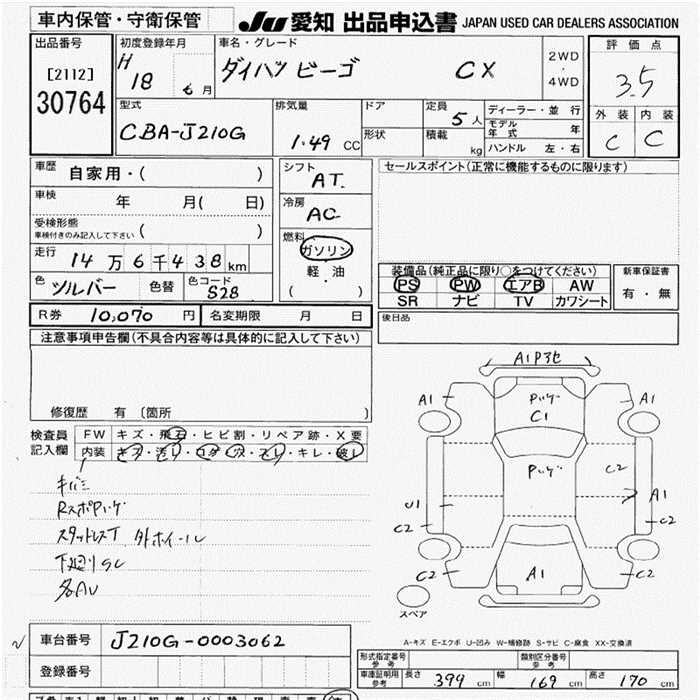 車内保管・守衛保管
JU 愛知 出品申込書 JAPAN USED CAR DEALERS ASSOCIATION
出品番号
[2112]
30764
初度登録年月
H 18 6 月
車名・グレード
ダイハツ ビーゴ CX
2WD
・
4WD
評価点
3.5
外装 内装
C C
型式
CBA-J210G
排気量
1.49 CC
ドア
形状
定員
5 人
積載
kg
ディーラー・並行
モデル年式 年
ハンドル 左・右
車歴 自家用・( )
車検 年 月( 日)
受検形態
車検付きのみ記入して下さい ( )
走行 14 万 6 千 4 3 8 km
色 シルバー 色替 色コード S28
シフト
AT.
冷房
AC
燃料
ガソリン
軽・油
( )
セールスポイント(正常に機能するものに限ります)
装備品(純正品に限り○をつけてください)
PS PW エアB AW
SR ナビ TV カワシート
新車保証書
有・無
R券 10,070 円 名変期限 月 日
後日品
注意事項申告欄(不具合内容等は具体的に記入して下さい)
修復歴 有 〔箇所 〕
検査員記入欄
FW キズ・飛石・ヒビ割・リペア跡・X要
内装 キズ・汚レ・コゲ・穴・スレ・キレ・破レ
キバミ
スタッドレスT 外ホイール
下廻りSL
A1
A1
C1
A1
C2
A1
U1
C2
C2
C2
A1
C2
スペア
A-キズ E-エクボ U-凹み W-補修跡 S-サビ C-腐食 XX-交換済
車台番号 J210G-0003062
登録番号
形式指定番号 参考
類別区分番号 参考
車庫証明用 参考 長さ 399 cm 幅 169 cm 高さ 170 cm